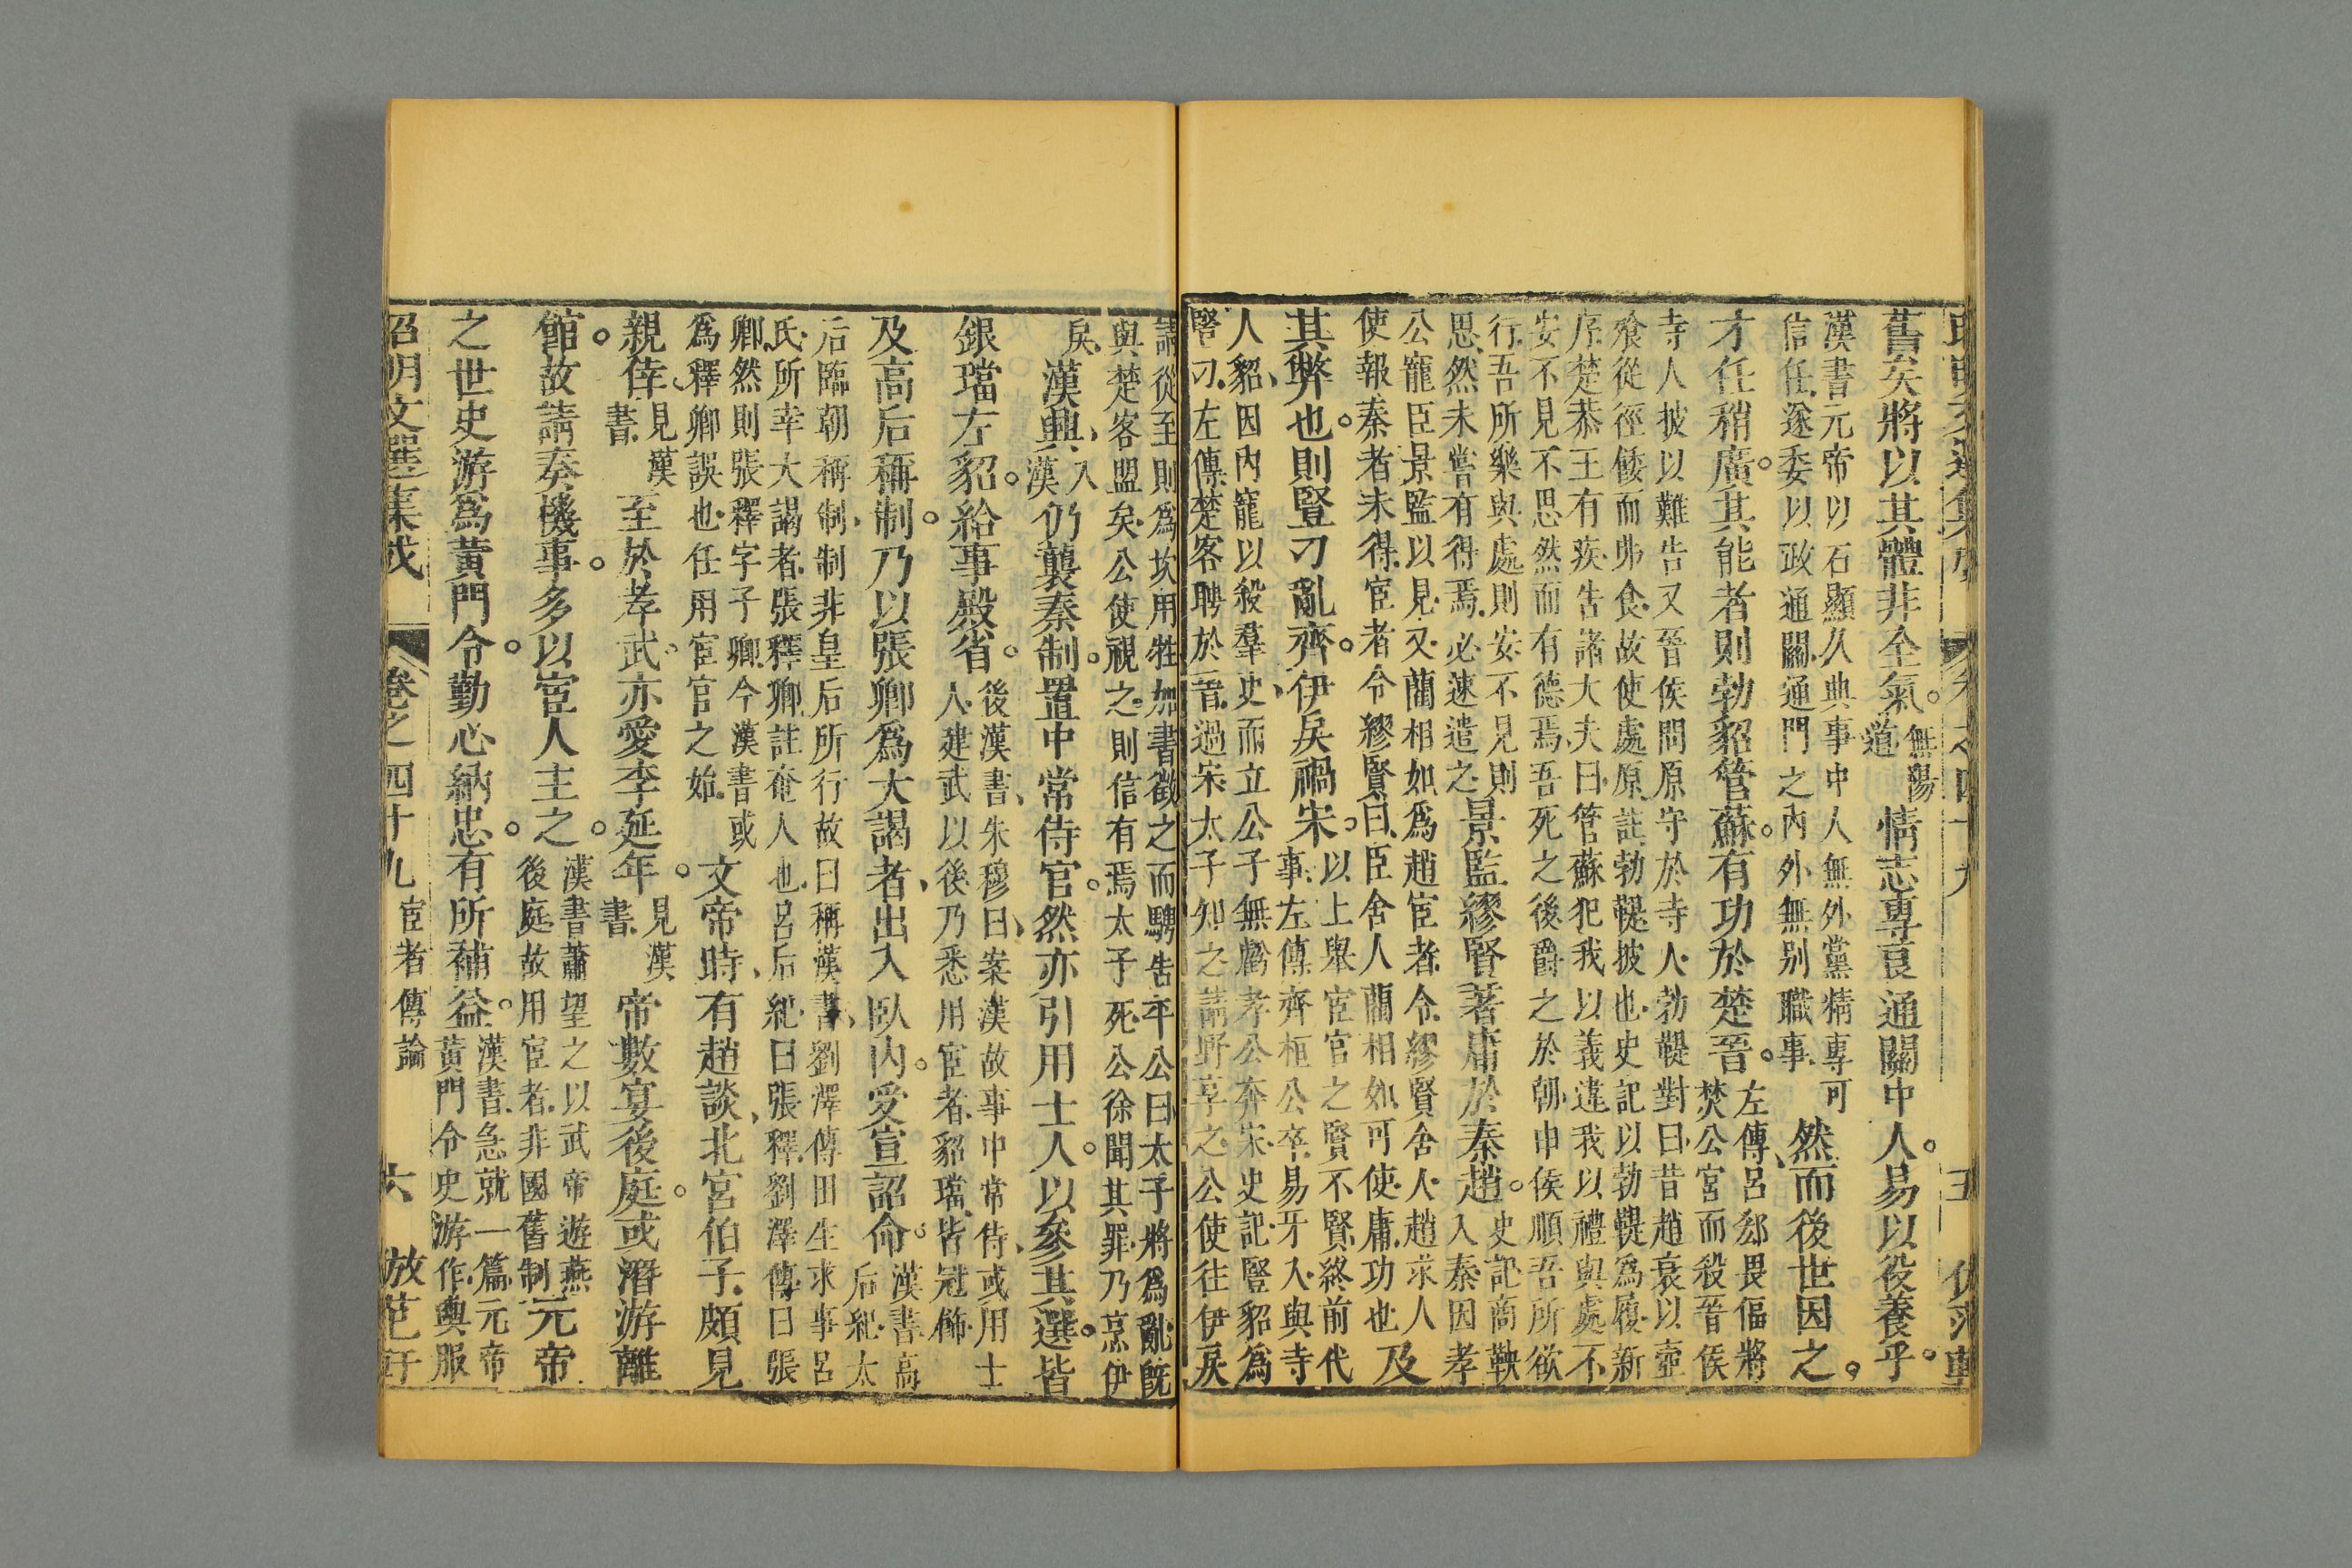 舊矣將以其體非全氣。無陽道情志專良通關中人。易以役養乎。
漢書元帝以石顯久典事中人無外黨精專可
信任遂委以政通關通門之內外無别職事
然而後世因之。
才任稍廣。其能者則勃貂管蘇。有功於楚晉。
左傳、呂郤畏偪將
焚公宮而殺晉侯
寺人披以難告又晉侯問原守於寺人勃鞮對曰昔趙衰以壺
飧從徑餒而弗食故使處原註勃鞮披也史記以勃鞮爲履新
序楚恭王有疾告諸大夫曰管蘇犯我以義違我以禮與處不
安不見不思然而有德焉吾死之後爵之於朝申侯順吾所欲
行吾所樂與處則安不見則
思然未嘗有得焉必速遣之
景監繆賢著庸於秦趙。
史記商鞅
入秦因孝
公寵臣景監以見又藺相如爲趙宦者令繆賢舍人趙求人
使報秦者未得宦者令繆賢曰臣舍人藺相如可使庸功也
及
其弊也。則豎刁亂齊。伊戾禍宋。
以上舉宦官之賢不賢終前代
事左傳齊桓公卒易牙入與寺
人貂因內寵以殺羣吏而立公子無虧孝公奔宋史記豎貂爲
豎刁左傳楚客聘於晉過宋太子知之請野享之公使往伊戾
請從至則爲坎用牲加書徵之而騁告平公曰太子將爲亂旣
與楚客盟矣公使視之則信有焉太子死公徐聞其罪乃烹伊
戾
漢興、
入
漢
仍襲秦制。置中常侍官。然亦引用士人。以參其選。皆
銀璫左貂。給事殿省。
後漢書、朱穆曰、案漢故事中常侍、或用士
人建武以後乃悉用宦者貂璫皆冠飾
及高后稱制。乃以張卿爲大謁者、出入臥內。愛宣詔命。
漢書高
后紀太
后臨朝稱制制非皇后所行故曰稱漢書劉澤傳田生求事呂
氏所幸大謁者張釋卿註奄人也呂后紀曰張釋劉澤傳曰張
卿然則張釋字子卿今漢書或
爲釋卿誤也任用宦官之始
文帝時、有趙談、北宮伯子頗見
親倖
見漢
書
至於孝武。亦愛李延年。
見漢
書
帝數宴後庭。或潛游離
館。故請奏機事。多以宦人主之。
漢書蕭望之以武帝遊燕
後庭故用宦者非國舊制
元帝
之世史游爲黃門令。勤心納忠。有所補益。
漢書急就一篇元帝
黃門令史游作輿服
昭明文選集成 卷之四十九 宦者傳論 六